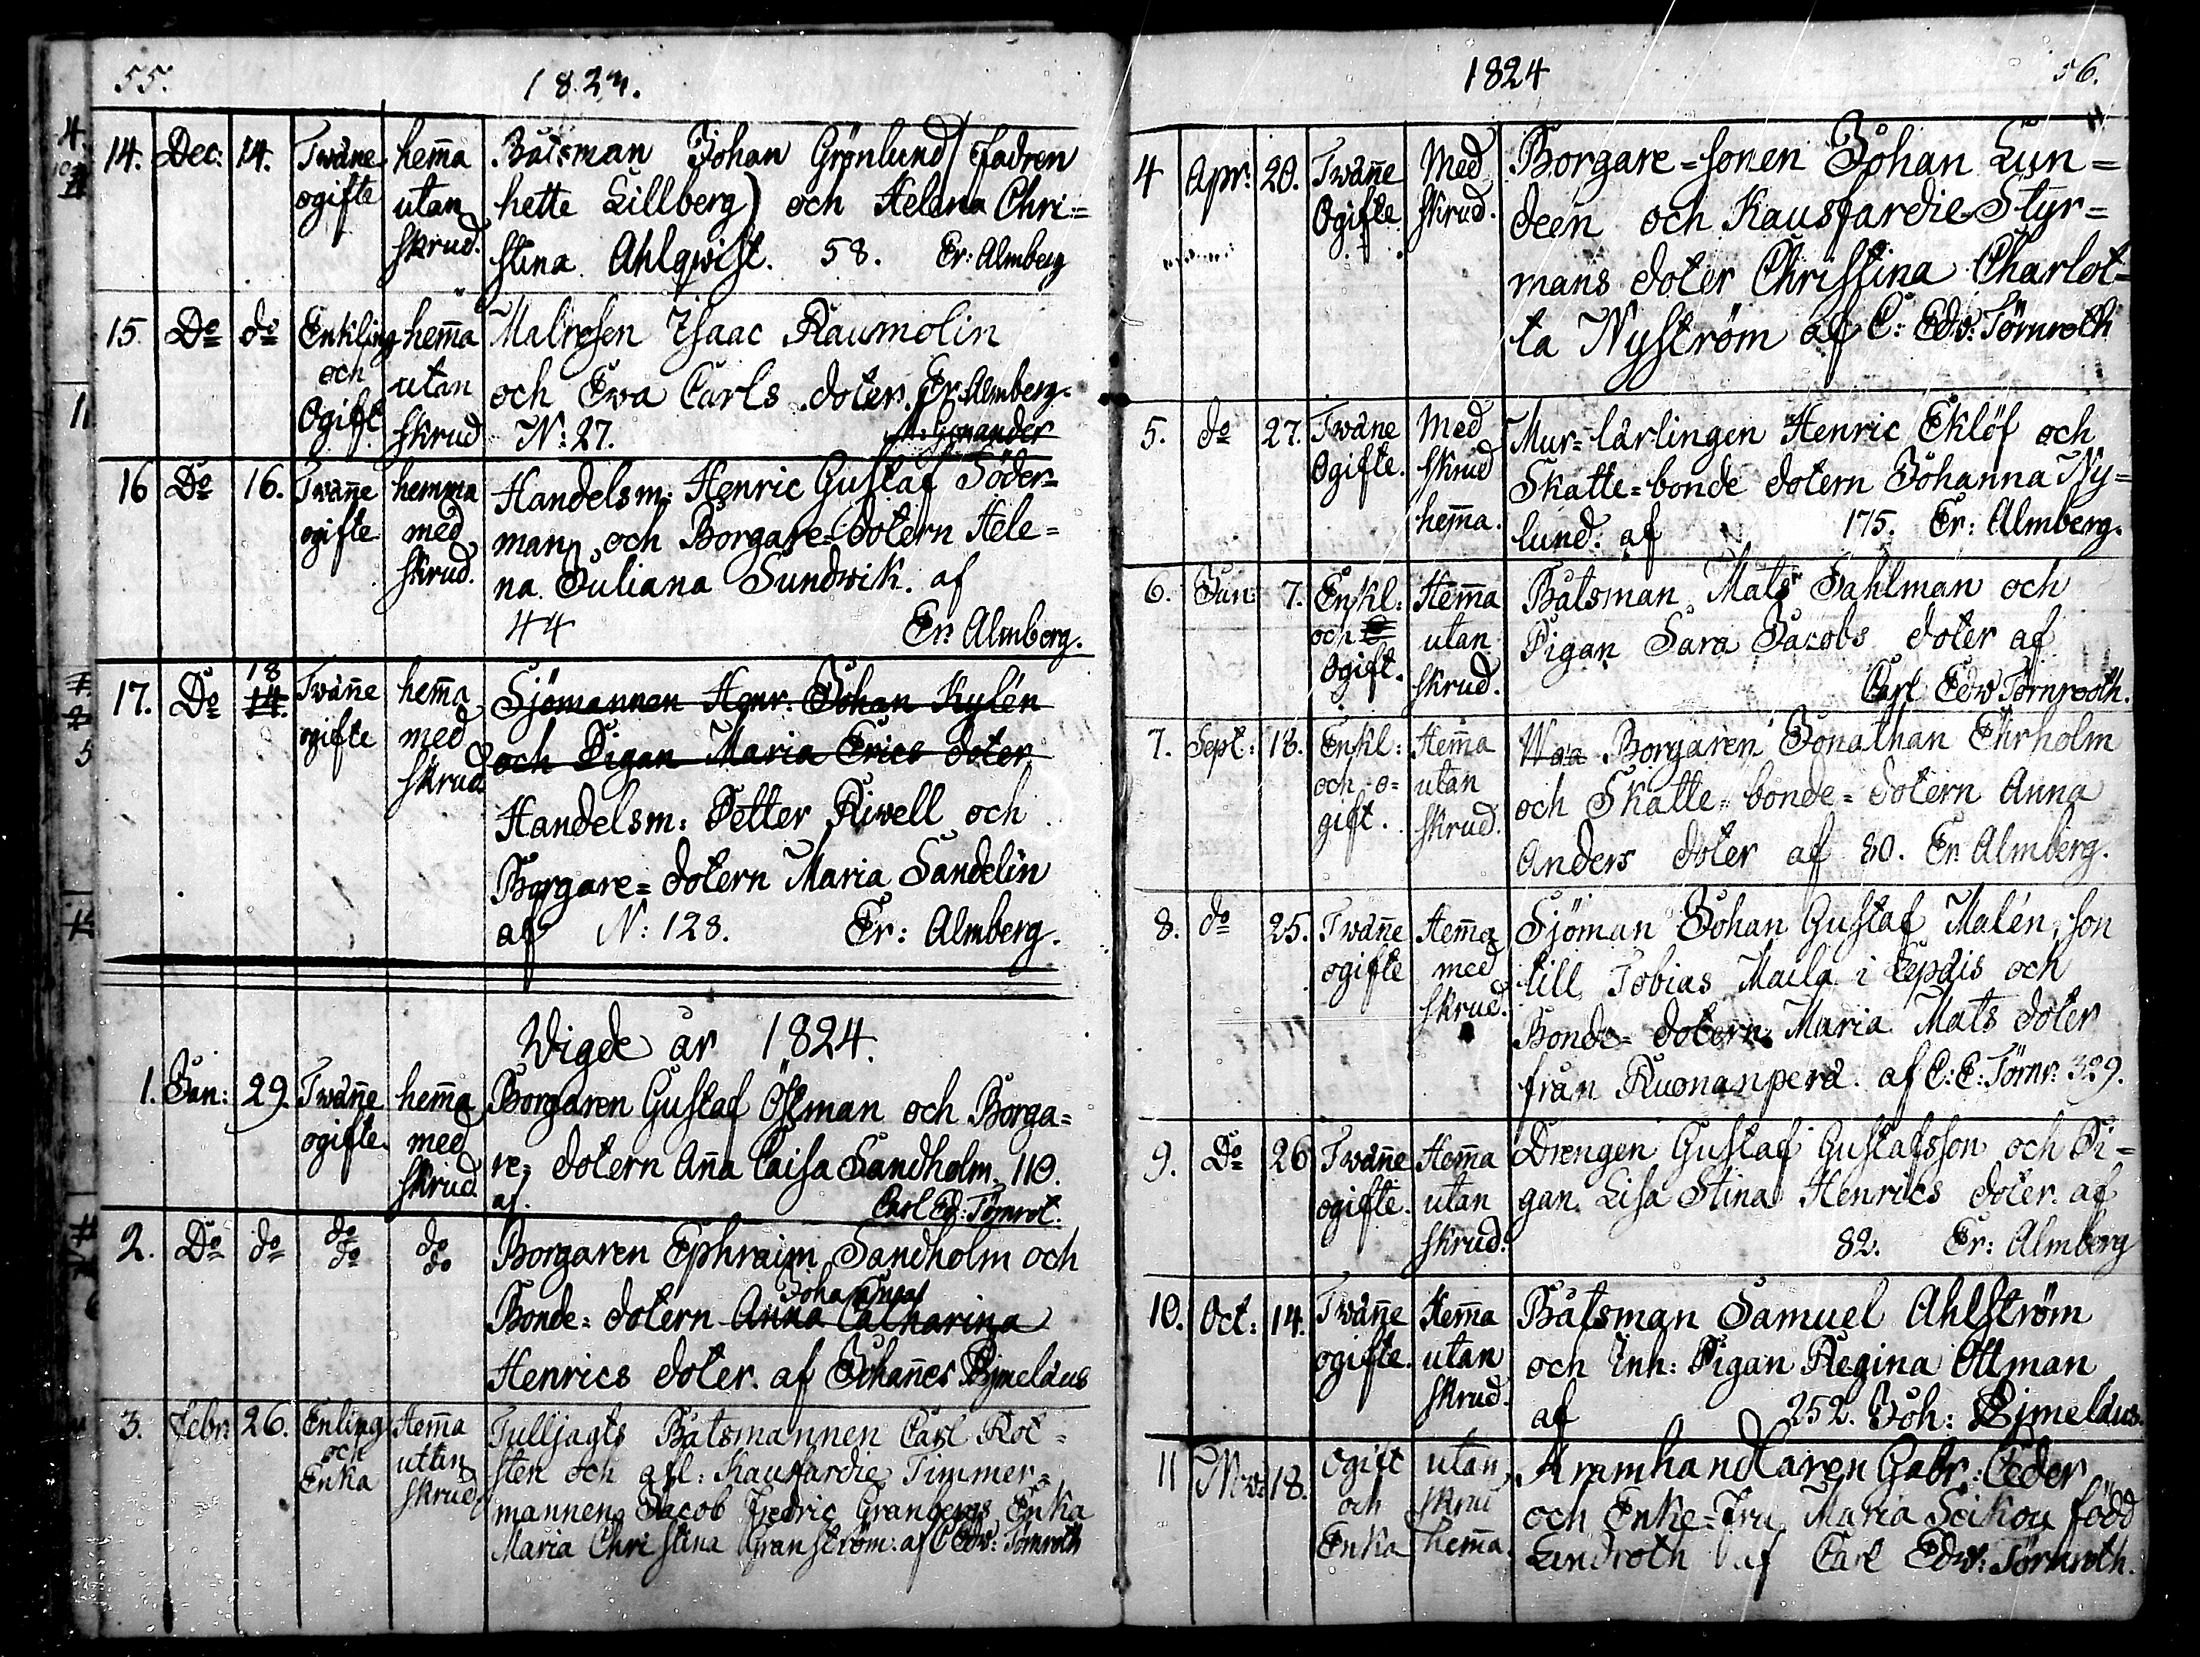 55.
1823.
14. Dec: 14. Twäne ogifte hem̄a utan skrud. Båtsman Johan Grönlund (fadren
hette Lillberg) och Helena Chri=
stina Ahlqwist. 58. Er: Almberg
15. Do do Enkling och Ogift hem̄a utan skrud Matrosen Isaac Raumolin
och Ewa Carls doter. Er: Almberg.
N: 27.
16 Do 16. Twän̄e ogifte hemma med skrud. Handelsm: Henric Gustaf Söder=
man, och Borgare=dotern Hele=
na Juliana Sundwik. af
44 Er: Almberg.
17. Do 18 14. Twän̄e ogifte hem̄a med skrud Sjömannen Henr: Johan Kylén
och Pigan Maria Erics doter
Handelsm: Petter Riwell och
Borgare=dotern Maria Sandelin
af N: 128. Er: Almberg.
Wigde år 1824.
1. Jan: 29. Twän̄e ogifte. hem̄a med skrud. Borgaren Gustaf Östman och Borga=
re=dotern An̄a Caisa Sandholm. 110.
af. Carl Ed: Törnrot.
2. Do do do do do do Borgaren Ephraim Sandholm och
Johanna
Bonde=dotern Anna Catharina
Henrics doter. af Johan̄es Bjmelæus
3. Febr: 26. Enling och Enka Hem̄a uttan skrud Tulljagts Båtsmannen Carl Rot=
sten och afl: Kaufardie Timmer=
mannens Jacob Fredric Granbergs Enka
Maria Christina Granström: af C Edv: Törnroth
1824
56.
4 Apr: 20. Twän̄e Ogifte. Med skrud. Borgare=sonen Johan Lun=
deen och Kausfardie Styr=
mans doter Christina Charlot=
ta Nyström af C: Edv: Törnroth
5. do 27. Twäne Ogifte. Med skrud hem̄a. Mur=lärlingen Henric Eklöf och
Skatte=bonde dotern Johanna Ny=
lund. af 175. Er: Almberg.
6. Jun: 7. Enkl: och Ogift. Hem̄a utan skrud. Båtsman Mats Sahlman och
Pigan Sara Jacobs doter af
Carl Edw Törnrooth.
7. Sept: 18. Enkl: och o=gift. Hem̄a utan skrud. Borgaren Jonathan Ehrholm
och Skatte=bonde=dotern Anna
Anders doter af 80. Er. Almberg.
8. do 25. Twän̄e ogifte Hem̄a med skrud. Sjöman Johan Gustaf Malén, son
till Tobias Maila i Lepäis och
Bonde=dotern Maria Mats doter
från Kuonanperä. af C: E: Törnr: 329.
9. Do 26 Twän̄e ogifte. Hem̄a utan skrud. Drengen Gustaf Gustafsson och Pi=
gan Lisa Stina Henrics doter. af
82. Er: Almberg
10. Oct: 14. Twän̄e ogifte. Hem̄a utan skrud. Båtsman Samuel Ahlström
och Inh: Pigan Regina Öttman
af 252. Joh: Bjmelæus.
11 Nov: 18. Ogift och Enka utan skrud hem̄a. Kramhandlaren Gabr: Ceder
och Enke=Fru Maria Scikou född
Lindroth af Carl Edw: Törnroth.